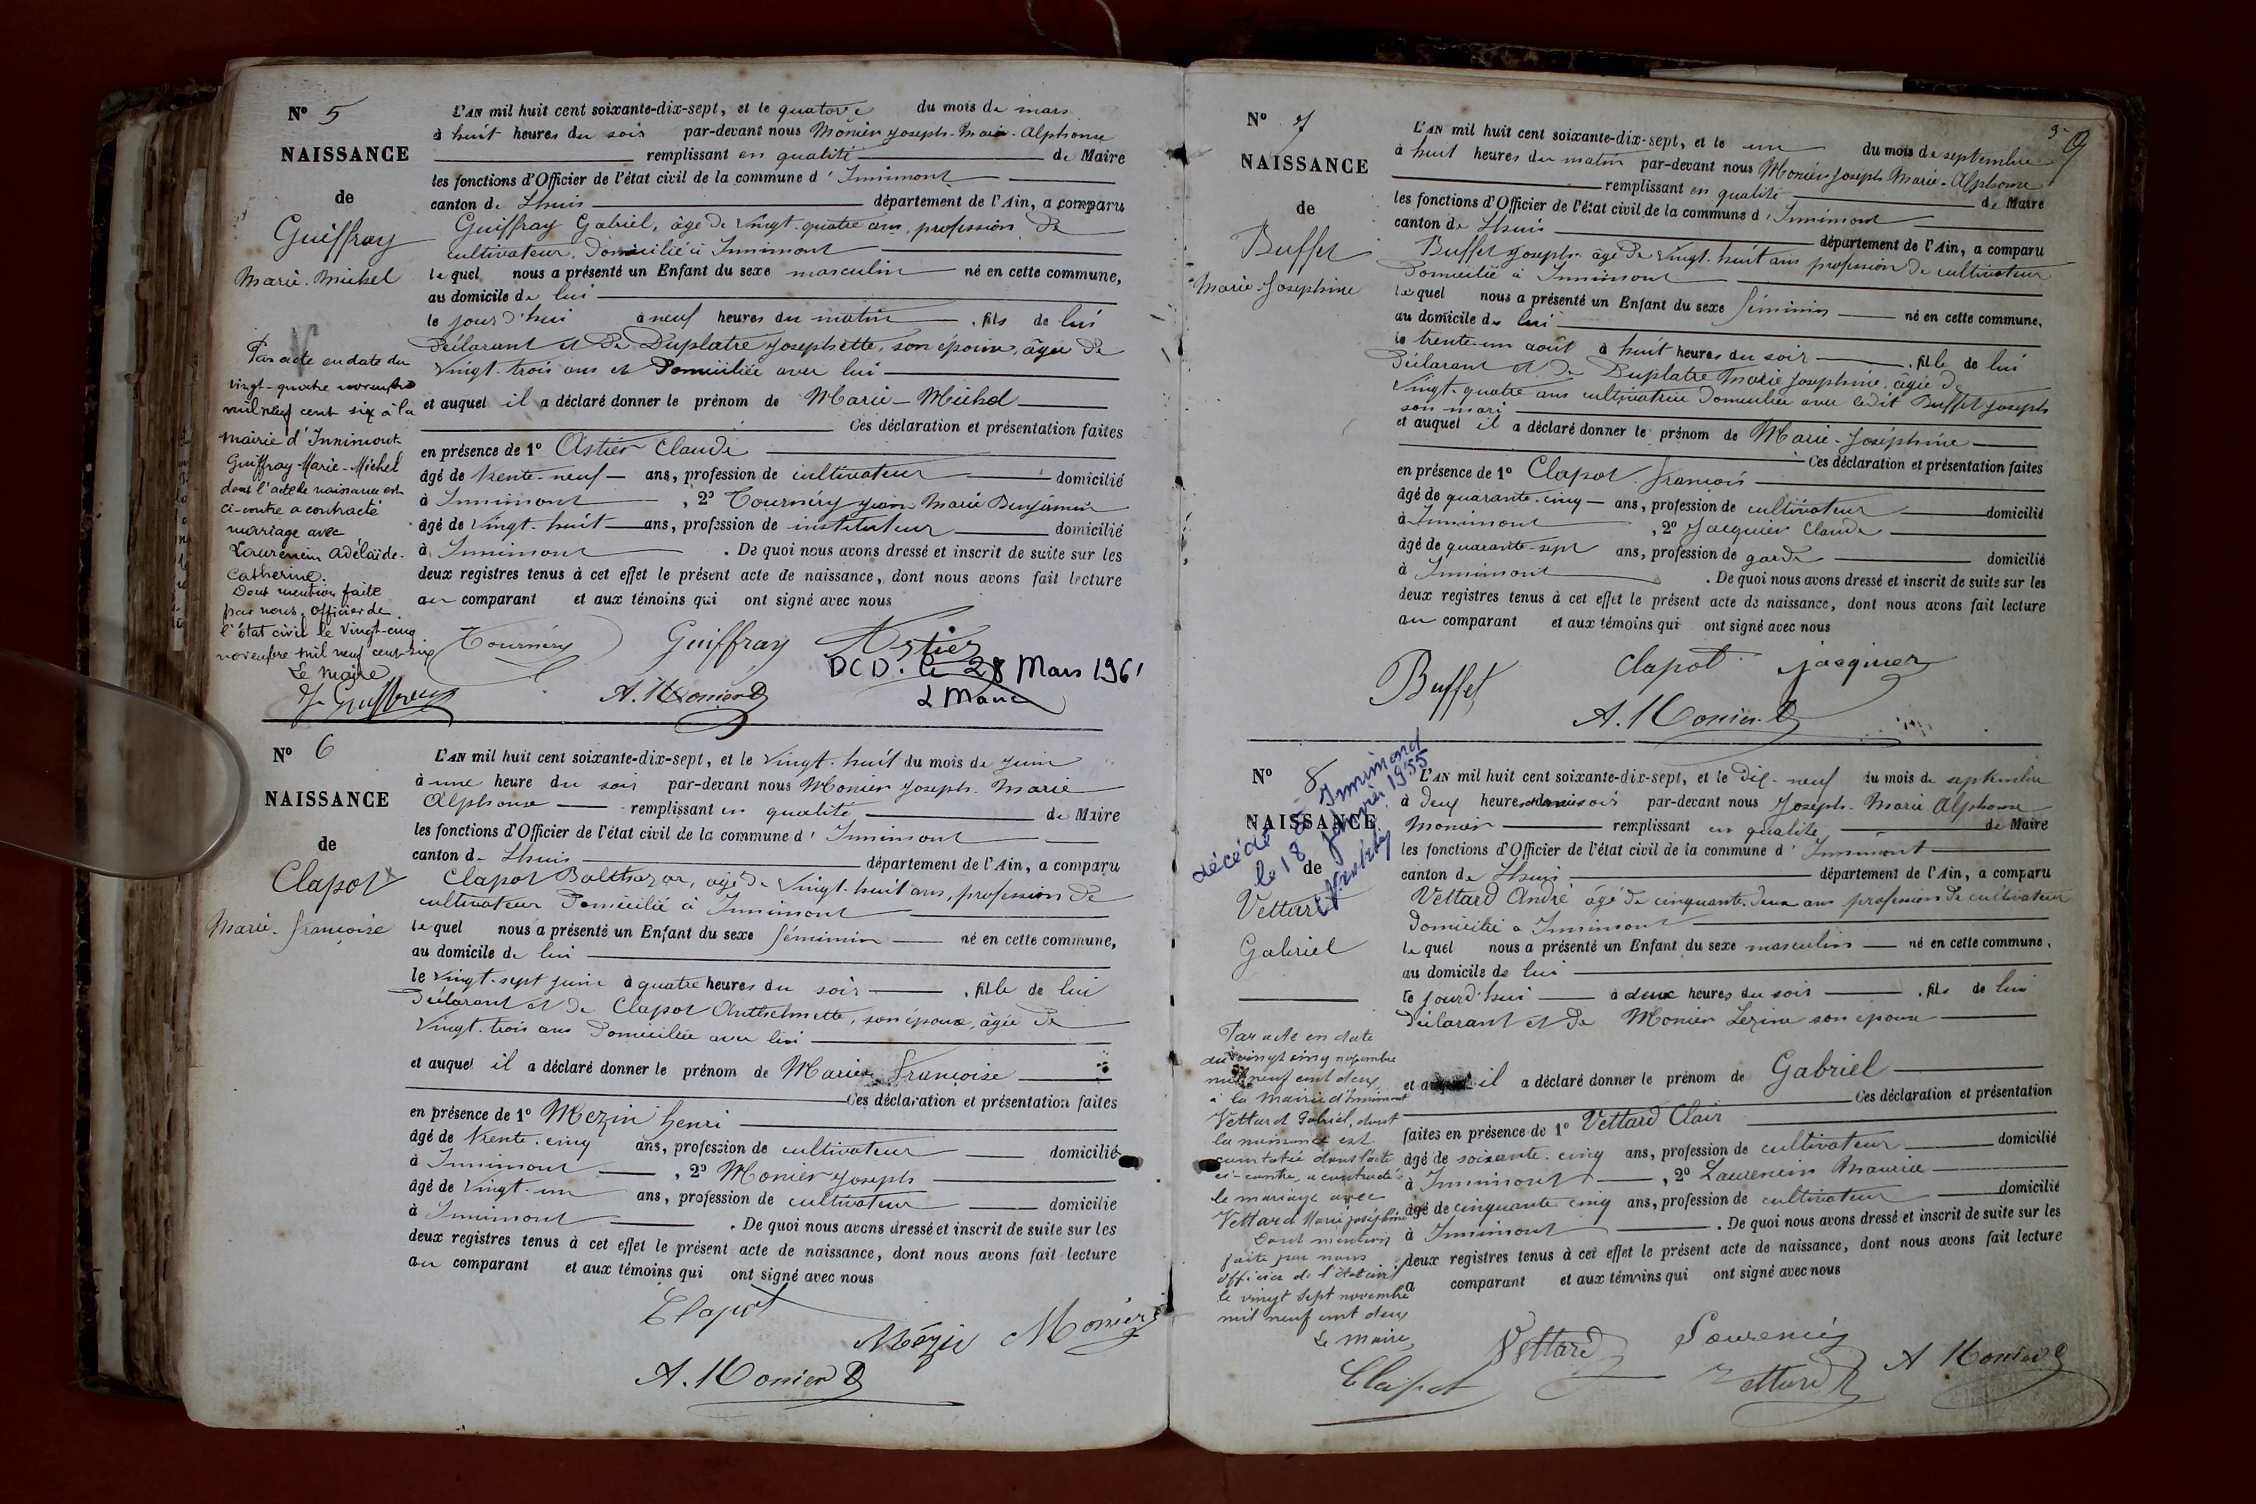 N° 5
NAISSANCE
de
Guiffray
Marie-Michel
Par acte en date du
vingt-quatre novembre
mil neuf cent six à la
mairie d'Innimont
Guiffray Marie-Michel
dont l'acte de naissance est
ci-contre a contracté
mariage avec
Laurencin Adélaïde-
Catherine.
Dont mention faite
par nous, officier de
l'état civil le vingt-cinq
novembre mil neuf cent six
Le Maire
L'AN mil huit cent soixante-dix-sept, et le quatorze du mois de mars
à huit heures du soir par-devant nous Monier Joseph-Marie-Alphonse
remplissant en qualité de Maire
les fonctions d'Officier de l'état civil de la commune d'Innimont
canton de Lhuis département de l'Ain, a comparu
Guiffray Gabriel, âgé de vingt-quatre ans, profession de
cultivateur, domicilié à Innimont
lequel nous a présenté un Enfant du sexe masculin né en cette commune,
au domicile de lui
le jour d'hui à neuf heures du matin, fils de lui
déclarant et de Duplatre Josephette, son épouse, âgée de
vingt-trois ans et domiciliée avec lui
et auquel il a déclaré donner le prénom de Marie-Michel
Ces déclaration et présentation faites
en présence de 1° Astier Claude
âgé de trente-neuf ans, profession de cultivateur domicilié
à Innimont, 2° Tournéry Jean Marie Benjamin
âgé de vingt-huit ans, profession de instituteur domicilié
à Innimont. De quoi nous avons dressé et inscrit de suite sur les
deux registres tenus à cet effet le présent acte de naissance, dont nous avons fait lecture
au comparant et aux témoins qui ont signé avec nous
Tournéry Guiffray Astier
DCD. le 28 Mars 1961
A. Monier
N° 6
NAISSANCE
de
Clapot
Marie-Françoise
L'AN mil huit cent soixante-dix-sept, et le vingt-huit du mois de juin
à une heure du soir par-devant nous Monier Joseph-Marie
Alphonse remplissant en qualité de Maire
les fonctions d'Officier de l'état civil de la commune d'Innimont
canton de Lhuis département de l'Ain, a comparu
Clapot Balthazar, âgé de vingt-huit ans, profession de
cultivateur domicilié à Innimont
lequel nous a présenté un Enfant du sexe féminin né en cette commune,
au domicile de lui
le vingt-sept juin à quatre heures du soir, fille de lui
déclarant et de Clapot Anthelmette, son épouse, âgée de
vingt-trois ans domiciliée avec lui
et auquel il a déclaré donner le prénom de Marie Françoise
Ces déclaration et présentation faites
en présence de 1° Mezin henri
âgé de trente-cinq ans, profession de cultivateur domicilié
à Innimont, 2° Monier Joseph
âgé de vingt-un ans, profession de cultivateur domicilié
à Innimont. De quoi nous avons dressé et inscrit de suite sur les
deux registres tenus à cet effet le présent acte de naissance, dont nous avons fait lecture
au comparant et aux témoins qui ont signé avec nous
Clapot
Mézin Monier
A. Monier
9
N° 7
NAISSANCE
de
Buffet
Marie-Josephine
L'AN mil huit cent soixante-dix-sept, et le un du mois de septembre
à huit heures du matin par-devant nous Monier Joseph Marie-Alphonse
remplissant en qualité de Maire
les fonctions d'Officier de l'état civil de la commune d'Innimont
canton de Lhuis département de l'Ain, a comparu
Buffet Joseph âgé de vingt-huit ans profession de cultivateur
domicilié à Innimont
lequel nous a présenté un Enfant du sexe féminin né en cette commune,
au domicile de lui
le trente-un août à huit heures du soir, fille de lui
déclarant et de Duplatre Marie Josephine âgée de
vingt-quatre ans cultivatrice domiciliée avec ledit Buffet Joseph
son mari
et auquel il a déclaré donner le prénom de Marie-Joséphine
Ces déclaration et présentation faites
en présence de 1° Clapot François
âgé de quarante-cinq ans, profession de cultivateur domicilié
à Innimont, 2° Jacquier Claude
âgé de quarante-sept ans, profession de garde domicilié
à Innimont. De quoi nous avons dressé et inscrit de suite sur les
deux registres tenus à cet effet le présent acte de naissance, dont nous avons fait lecture
au comparant et aux témoins qui ont signé avec nous
Buffet Clapot Jacquier
A. Monier
N° 8
NAISSANCE
de
Vettard
Gabriel
décédé à Innimond
le 18 janvier 1955
Par acte en date
du vingt cinq novembre
mil neuf cent deux
à la Mairie d'Innimont
Vettard Gabriel, dont
la naissance est
constatée dans l'acte
ci-contre, a contracté
le mariage avec
Vettard Marie Joséphine
Dont mention
faite par nous
officier de l'état civil
le vingt sept novembre
mil neuf cent deux
Le Maire,
Clapot
L'AN mil huit cent soixante-dix-sept, et le dix-neuf du mois de septembre
à deux heures du soir par-devant nous Joseph-Marie Alphonse
Monier remplissant en qualité de Maire
les fonctions d'Officier de l'état civil de la commune d'Innimont
canton de Lhuis département de l'Ain, a comparu
Vettard André âgé de cinquante-deux ans profession de cultivateur
domicilié à Innimont
lequel nous a présenté un Enfant du sexe masculin né en cette commune,
au domicile de lui
le jourd'hui à deux heures du soir, fils de lui
déclarant et de Monier Lezine son épouse
et auquel il a déclaré donner le prénom de Gabriel
Ces déclaration et présentation
faites en présence de 1° Vettard Clair
âgé de soixante-cinq ans, profession de cultivateur domicilié
à Innimont, 2° Laurencin Maurice
âgé de cinquante cinq ans, profession de cultivateur domicilié
à Innimont. De quoi nous avons dressé et inscrit de suite sur les
deux registres tenus à cet effet le présent acte de naissance, dont nous avons fait lecture
a comparant et aux témoins qui ont signé avec nous
Vettard Laurencin
Vettard A Monier